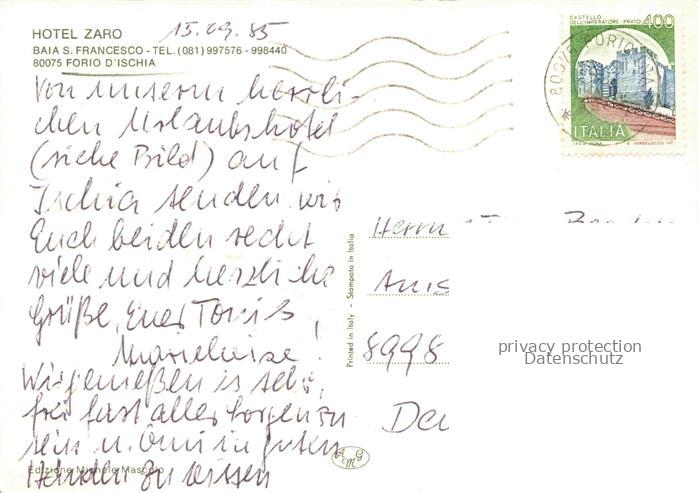 HOTEL ZARO
BAIA S. FRANCESCO - TEL. (081) 997576 - 998440
80075 FORIO D'ISCHIA
15.09.85
Von unserm herrli-
chen Urlaubshotel
(siehe Bild) auf
Ischia senden wir
Euch beiden recht
viele und herzliche
Grüße, Eure Toni &
Marieluise!
Wir genießen es sehr,
frei fast aller Sorgen zu
sein u. Omi in guten
Händen zu wissen
Edizione Michele Mascolo
Printed in Italy - Stampato in Italia
AMG
CASTELLO
DELL'IMPERATORE - PRATO
400
ITALIA
Herrn
8998
privacy protection
Datenschutz